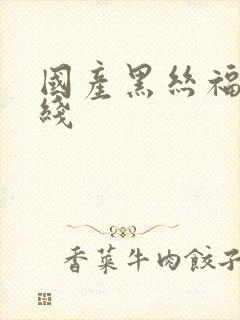 國產黑絲福
綫
香菜牛肉餃子